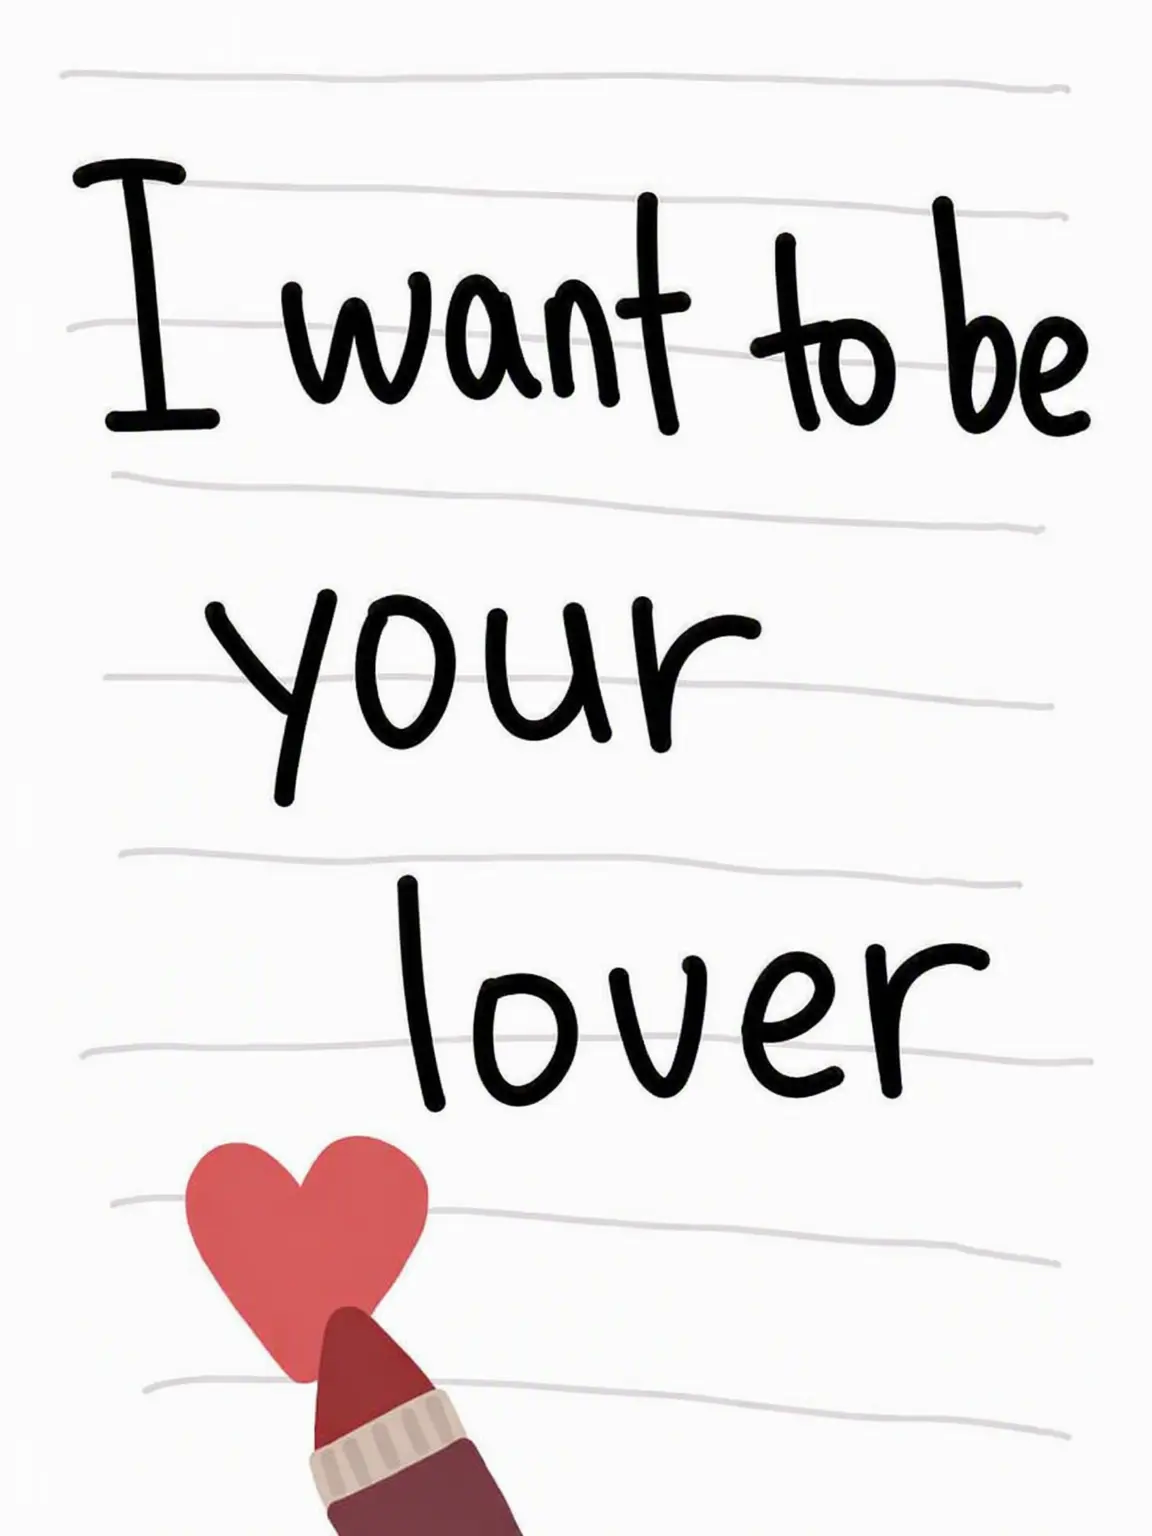 I want to be
your
lover